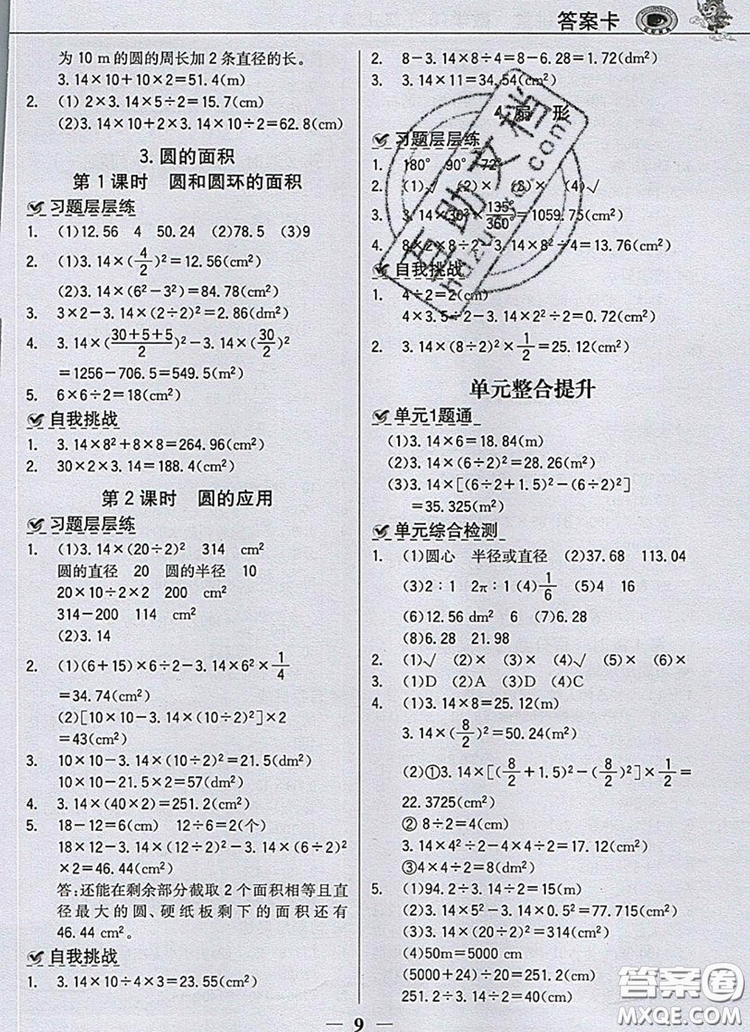 答案卡
为 10 m 的圆的周长加 2 条直径的长。
3.14×10+10×2=51.4(m)
2. (1) 2×3.14×5÷2=15.7(cm)
(2)3.14×10+2×3.14×10÷2=62.8(cm)
3.圆的面积
第 1 课时 圆和圆环的面积
习题层层练
1. (1)12.56 4 50.24 (2)78.5 (3)9
2. (1)3.14×(4/2)²=12.56(cm²)
(2)3.14×(6²-3²)=84.78(cm²)
3. 3×2-3.14×(2÷2)²=2.86(dm²)
4. 3.14×((30+5+5)/2)²-3.14×(30/2)²
=1256-706.5=549.5(m²)
5. 6×6÷2=18(cm²)
自我挑战
1. 3.14×8²+8×8=264.96(cm²)
2. 30×2×3.14=188.4(cm²)
第 2 课时 圆的应用
习题层层练
1. (1)3.14×(20÷2)² 314 cm²
圆的直径 20 圆的半径 10
20×(20÷2)÷2×2 200 cm²
314-200 114 cm²
(2)3.14
2. (1)(6+15)×6÷2-3.14×6²×1/4
=34.74(cm²)
(2)[10×10-3.14×(10÷2)²]×2
=43(cm²)
3. 10×10-3.14×(10÷2)²=21.5(dm²)
10×10-21.5×2=57(dm²)
4. 3.14×(40×2)=251.2(cm²)
5. 18-12=6(cm) 12÷6=2(个)
18×12-3.14×(12÷2)²-3.14×(6÷2)²
×2=46.44(cm²)
答:还能在剩余部分截取 2 个面积相等且直
径最大的圆、硬纸板剩下的面积还有
46.44 cm²。
自我挑战
1. 3.14×10÷4×3=23.55(cm)
2. 8-3.14×8÷4=8-6.28=1.72(dm²)
3. 3.14×11=34.54(cm²)
4.扇 形
习题层层练
1. 180° 90° 72°
2. (1)√ (2)× (3)× (4)√
3. 3.14×(30²×135°/360°)=1059.75(cm²)
4. 8×2×8÷2-3.14×8²÷4=13.76(cm²)
自我挑战
1. 4÷2=2(cm)
4×3.5÷2-3.14×2²÷2=0.72(cm²)
2. 3.14×(8÷2)²×1/2=25.12(cm²)
单元整合提升
单元1题通
(1)3.14×6=18.84(m)
(2)3.14×(6÷2)²=28.26(m²)
(3)3.14×[(6÷2+1.5)²-(6÷2)²]
=35.325(m²)
单元综合检测
1. (1)圆心 半径或直径 (2)37.68 113.04
(3)2∶1 2π∶1 (4)1/6 (5)4 16
(6)12.56 dm² (7)6.28
(8)6.28 21.98
2. (1)√ (2)× (3)× (4)√
3. (1)D (2)A (3)D (4)C
4. (1)3.14×8=25.12(m)
3.14×(8/2)²=50.24(m²)
(2)①3.14×[(8/2+1.5)²-(8/2)²]×1/2=
22.3725(cm²)
② 8÷2=4(cm)
3.14×4²÷2-4×4÷2=17.12(cm²)
③4×4÷2=8(cm²)
5. (1)94.2÷3.14÷2=15(m)
(2)3.14×2×5÷2=15.7(cm)
(3)3.14×(20÷2)²=314(cm²)
(4)50m=5000 cm
(5000+24)÷20=251.2(cm)
251.2÷3.14÷2=40(cm)
互助文档
hdzuoye.com
答案圈
MXQE.COM
9